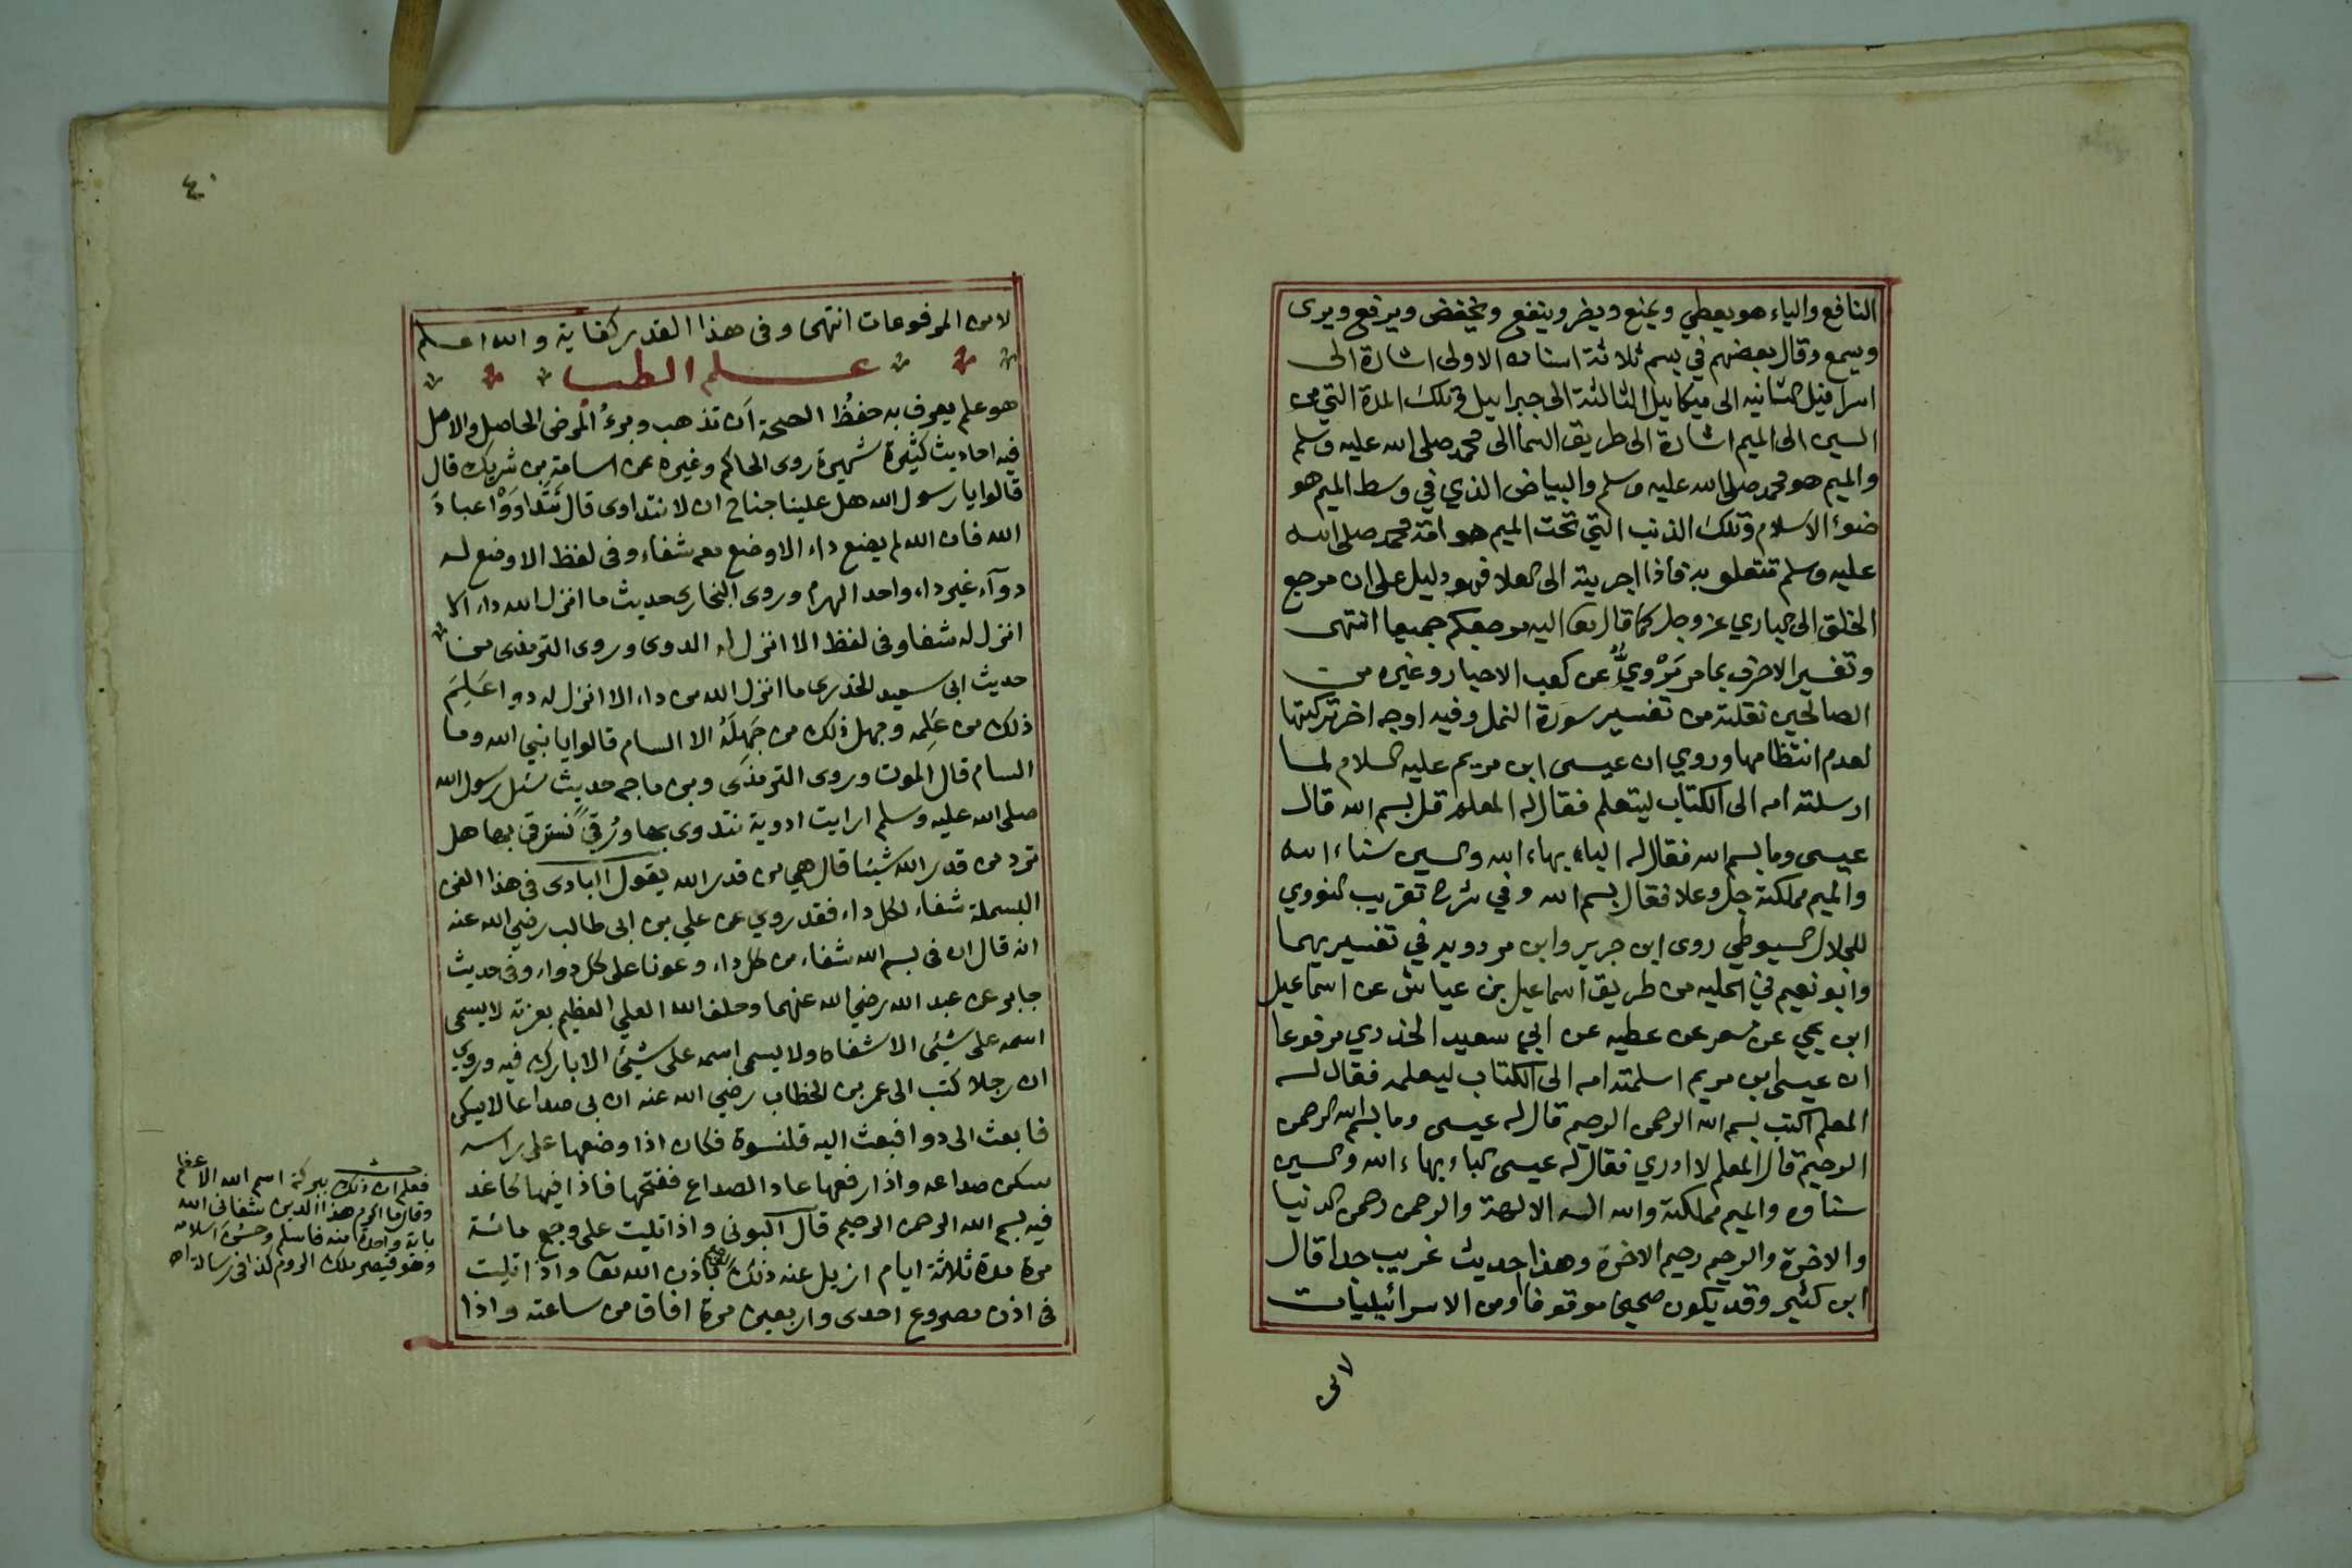 النافع والياء هو يعطي ويمنع ويضر وينفع ويخفض ويرفع ويرى
ويسمع وقال بعضهم في بسم ثلاثة اسنان الاولى اشارة الى
اسرافيل الثانيه الى ميكاييل الثالثة الى جبراييل وتلك المدة التي من
السين الى الميم اشارة الى طريق السما الى محمد صلى الله عليه وسلم
والميم هو محمد صلى الله عليه وسلم والبياض الذي في وسط الميم هو
ضوء الاسلام وتلك الذنب التي تحت الميم هو امة محمد صلى الله
عليه وسلم تتعلو به فاذا اجريته الى العلا فهو دليل على ان مرجع
الخلق الى الباري عز وجل كما قال تعا اليه مرجعكم جميعا انتهى
وتفسير الاحرف بما مر مَرْوِيٌّ عن كعب الاحبار وغيره من
الصالحين نقلته من تفسير سورة النمل وفيه اوجه اخر تركتها
لعدم انتظامها وروي ان عيسى ابن مريم عليه السلام لما
ارسلته امه الى الكتاب ليتعلم فقال له المعلم قل بسم الله قال
عيسى وما بسم الله فقال له الباء بهاء الله والسين سناء الله
والميم مملكته جل وعلا فقال بسم الله وفي شرح تقريب النووي
للجلال السيوطي روى ابن جرير وابن مردويه في تفسيريهما
وابو نعيم في الحليه من طريق اسماعيل بن عياش عن اسماعيل
ابن يحيي عن مسعر عن عطيه عن ابي سعيد الخذري مرفوعا
ان عيسى ابن مريم اسلمته امه الى الكتاب ليعلمه فقال له
المعلم اكتب بسم الله الرحمن الرحيم قال له عيسى وما بسم الله الرحمن
الرحيم قال المعلم لا ادري فقال له عيسى الباء بهاء الله والسين
سناوه والميم مملكته والله اله الالهة والرحمن رحمن الدنيا
والاخرة والرحيم رحيم الاخرة وهذا حديث غريب جدا قال
ابن كثير وقد يكون صحيحا موقوفا او من الاسرائيليات
لا من
٤٠
لا من المرفوعات انتهى وفى هذا القدر كفاية والله اعلم
علم الطب
هو علم يعرف به حفظُ الصحة اَن تذهب وبرءُ المرض الحاصل والاصل
فيه احاديث كثيرة شهيرة روى الحاكم وغيره عن اسامة بن شريك قال
قالوا يا رسول الله هل علينا جناح ان لا نتداوى قال تَدَاوَوْا عبادَ
الله فان الله لم يضع داء الا وضع معه شفاء وفى لفظ الا وضع له
دوآء غير داء واحد الهرم وروى البخارى حديث ما انزل الله داء الا
انزل له شفا وفى لفظ الا انزل له الدوى وروى الترمذى من
حديث ابى سعيد الخذرى ما انزل الله من داء الا انزل له دوا عَلِمَ
ذلك من عَلِمه وجهل ذلك من جَهِلَهُ الا السام قالوا يا نبي الله وما
السام قال الموت وروى الترمذى وبن ماجه حديث سئل رسول الله
صلى الله عليه وسلم ارايت ادوية نتدوى بها ورُقىً نسترقى بها هل
ترد من قدر الله شيئا قال هي من قدر الله يقول ابادى فى هذا الفن
البسملة شفاء لكل داء فقد روي عن علي بن ابى طالب رضي الله عنه
انه قال ان فى بسم الله شفاء من كل داء وعونا على كل دواء وفى حديث
جابر عن عبد الله رضي الله عنهما وحلف الله العلي العظيم بعزته لا يسمى
اسمه على شيئى الا شفاه ولا يسمى اسمه على شيئى الا بارك فيه وروي
ان رجلا كتب الى عمر بن الخطاب رضي الله عنه ان بى صداعا لا يسكن
فابعث الى دوا فبعث اليه قلنسوة فكان اذا وضعها على راسه
سكن صداعه واذا رفعها عاد الصداع ففتحها فاذا فيها كاغد
فيه بسم الله الرحمن الرحيم قال البونى واذا تليت على وجع مائة
مرة مدة ثلاثة ايام ازيل عنه ذلك باذن الله تعا واذا تليت
فى اذن مصروع احدى واربعين مرة افاق من ساعته واذا
فعلم ان ذلك ببركة اسم الله الاعظم
وقال ما اكرم هذا الدين شفانى الله
باية واحدة منه فاسلم وحَسُنَ اسلامه
وهو قيصر ملك الروم كذا فى رسالة اه